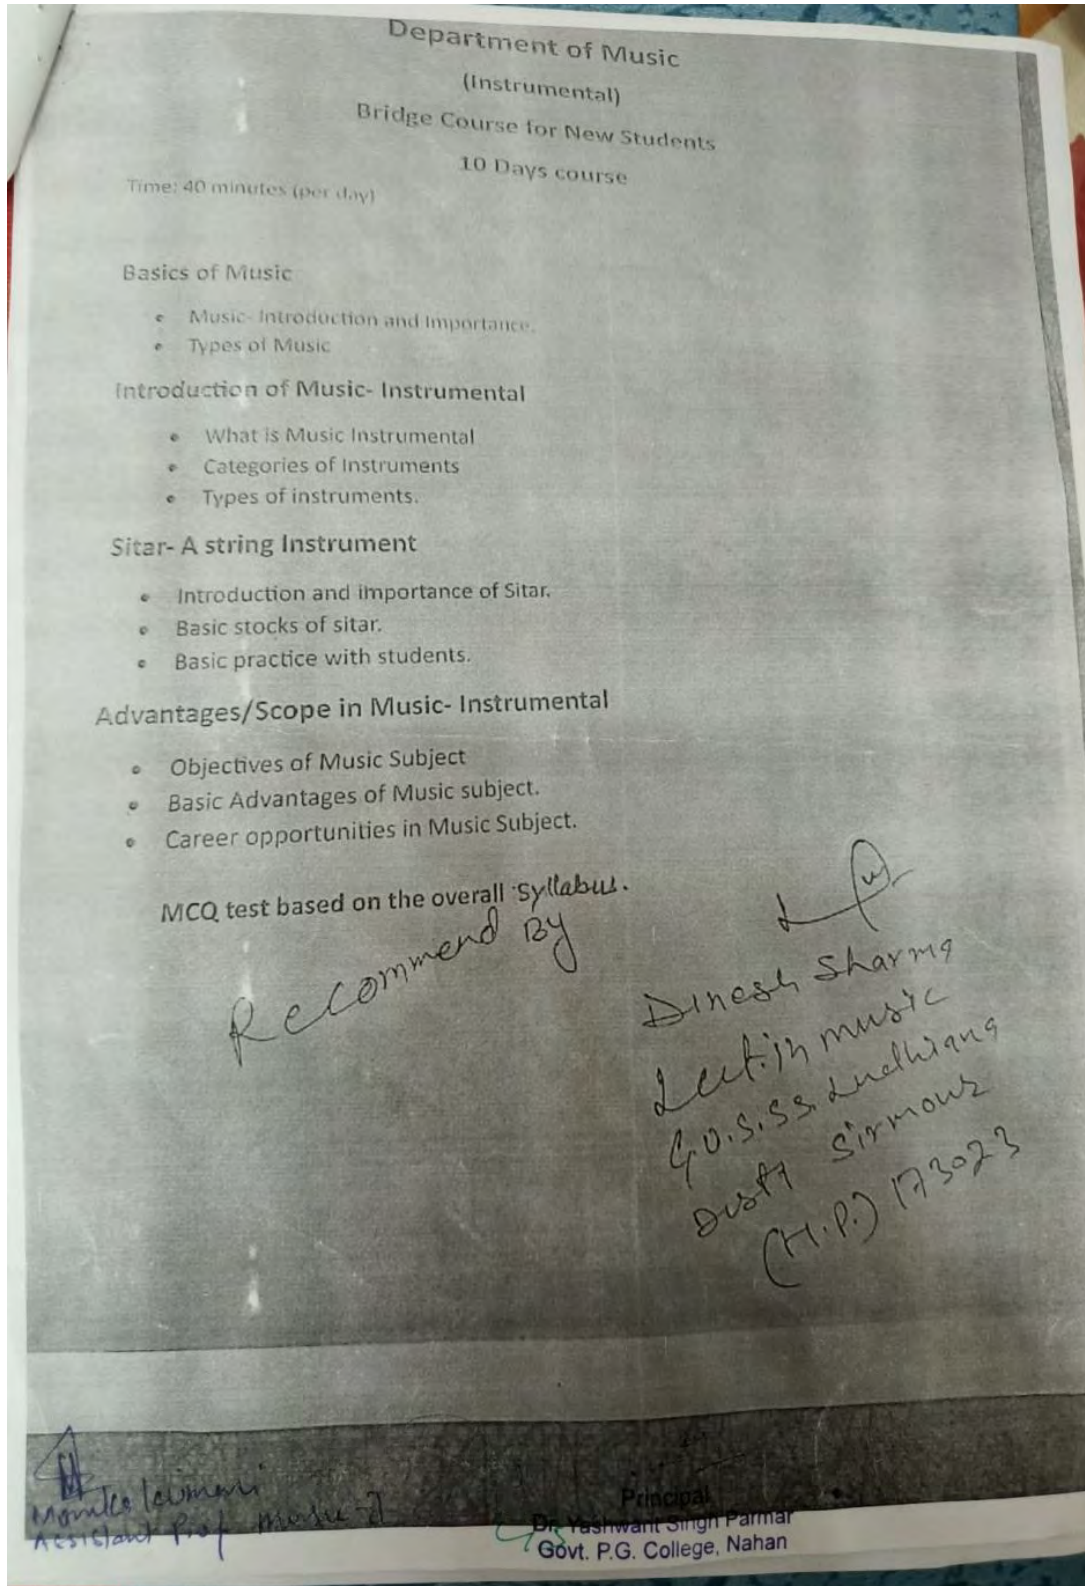 Department of Music
(Instrumental)
Bridge Course for New Students
10 Days course
Time: 40 minutes (per day)
Basics of Music
• Music- Introduction and Importance.
• Types of Music
Introduction of Music- Instrumental
• What is Music Instrumental
• Categories of Instruments
• Types of instruments.
Sitar- A string Instrument
• Introduction and importance of Sitar.
• Basic stocks of sitar.
• Basic practice with students.
Advantages/Scope in Music- Instrumental
• Objectives of Music Subject
• Basic Advantages of Music subject.
• Career opportunities in Music Subject.
MCQ test based on the overall Syllabus.
Recommend By
Dinesh Sharma
Lect. in music
Ludhiana
Distt Sirmour
(H.P.) 173023
Assistant Prof
Principal
Dr. Yashwant Singh Parmar
Govt. P.G. College, Nahan